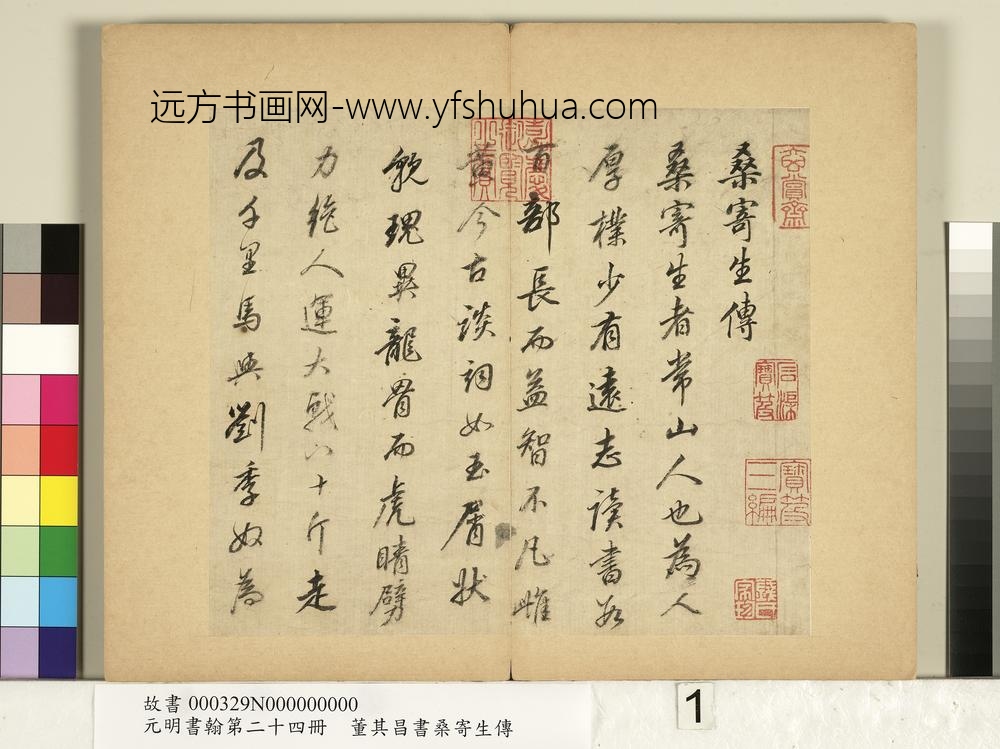 远方书画网-www.yfshuhua.com
玄賞齋
石渠寶笈
寶笈三編
桑寄生傳
桑寄生者常山人也為人
厚樸少有遠志讀書數
百部長而益智不凡雌
黃今古談詞如玉屑狀
嘉慶御覽之寶
貌瑰異龍骨而虎睛
力絕人運大戟八十斤走
及千里馬與劉季奴為
故書 000329N000000000
元明書翰第二十四冊 董其昌書桑寄生傳
1